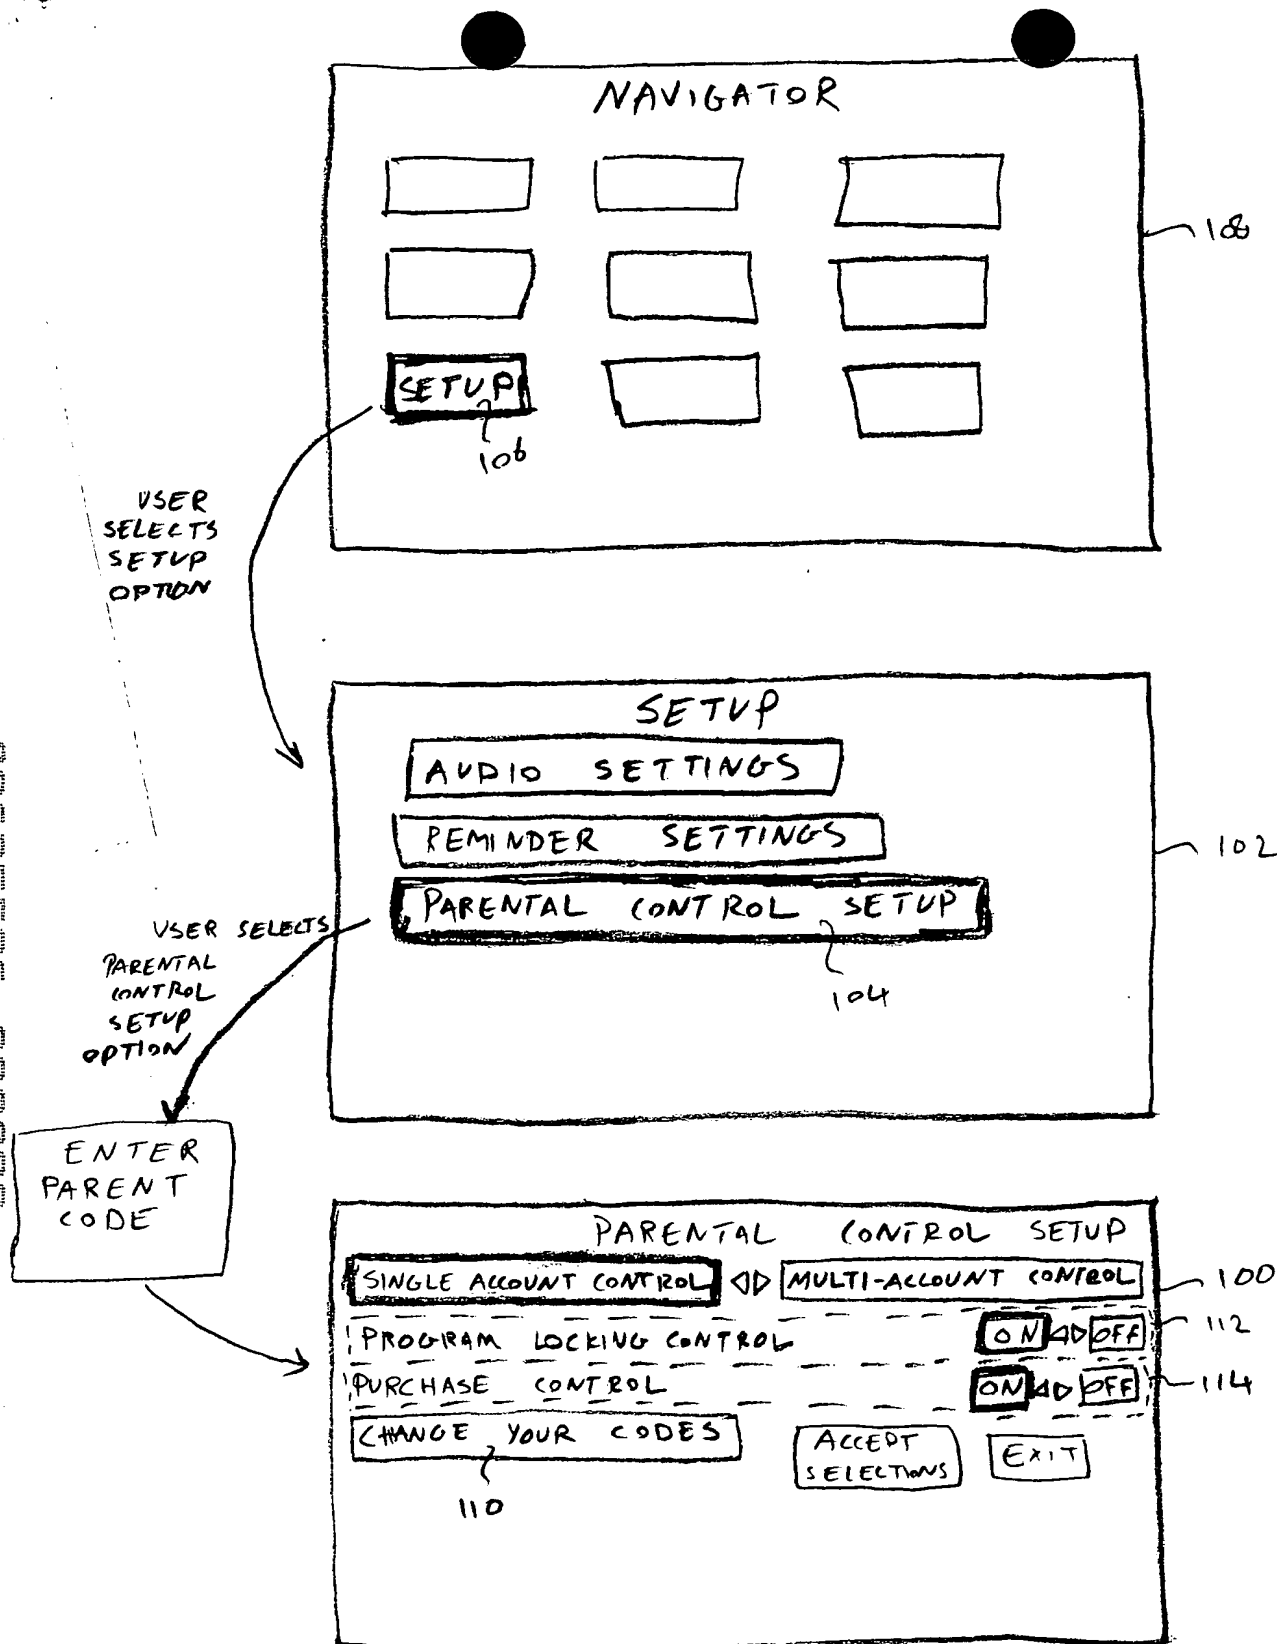 NAVIGATOR
108
SETUP
106
USER
SELECTS
SETUP
OPTION
SETUP
AUDIO SETTINGS
REMINDER SETTINGS
102
PARENTAL CONTROL SETUP
104
USER SELECTS
PARENTAL
CONTROL
SETUP
OPTION
ENTER
PARENT
CODE
PARENTAL CONTROL SETUP
SINGLE ACCOUNT CONTROL MULTI-ACCOUNT CONTROL 100
PROGRAM LOCKING CONTROL ON OFF 112
PURCHASE CONTROL ON OFF 114
CHANGE YOUR CODES ACCEPT SELECTIONS EXIT
110